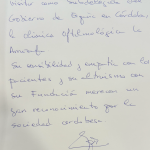 Visito como Subdelegado del
Gobierno de España en Córdoba
la clínica Oftalmológica La
Arruzafa.
Su sensibilidad y empatía con los
pacientes y su altruismo con
su Fundación merecen un
gran reconocimiento por la
sociedad cordobesa